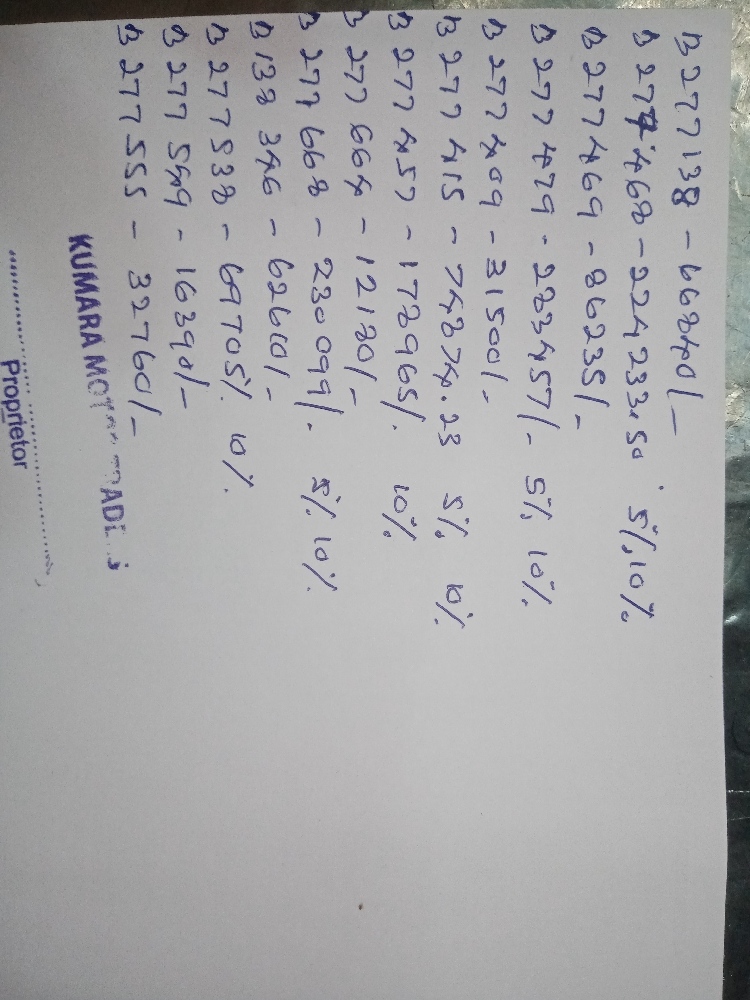 B 277138 - 66840/-
B 277468 - 224233.50 5% 10%
B 277469 - 86235/-
B 277479 - 283457/- 5% 10%
B 277409 - 31500/-
B 277415 - 74874.23 5% 10%
B 277457 - 178965/. 10%
B 277664 - 12180/-
B 277668 - 230099/. 5% 10%
B 138346 - 62610/-
B 277538 - 69705/. 10%
B 277549 - 16390/-
B 277555 - 32760/-
KUMARA MOTOR TRADERS
Proprietor